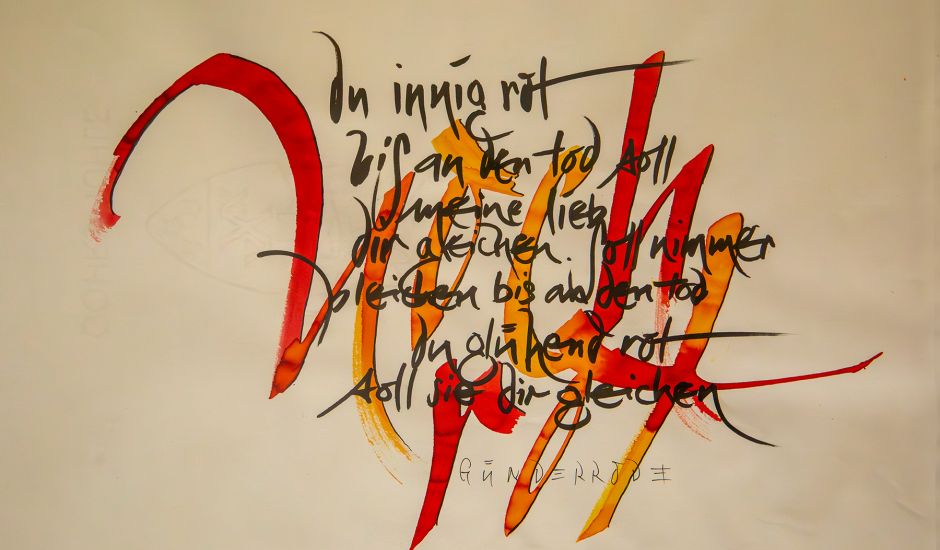 du innig rot
bis an den tod soll
meine lieb
dir gleichen soll nimmer
bleichen bis an den tod
du glühend rot
soll sie dir gleichen
GÜNDERRODE